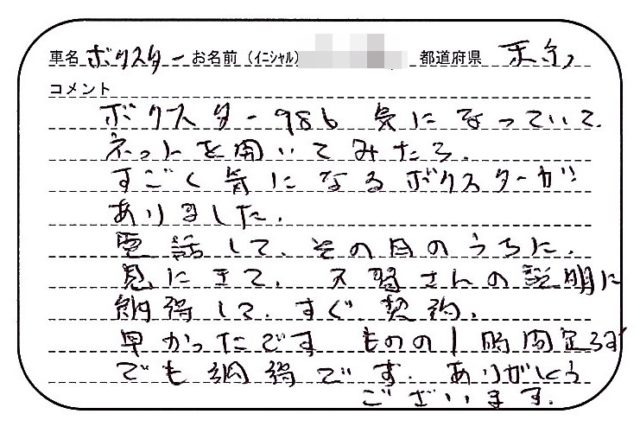 車名 ボクスター お名前(イニシャル) 都道府県
コメント
ボクスター986 気になっていて、
ネットを開いてみたら、
すごく気になるボクスターが
ありました。
電話して、その日のうちに、
見にきて、さんの説明に
納得して、すぐ契約。
早かったです ものの1時間足らず
でも納得です。ありがとう
ございます。